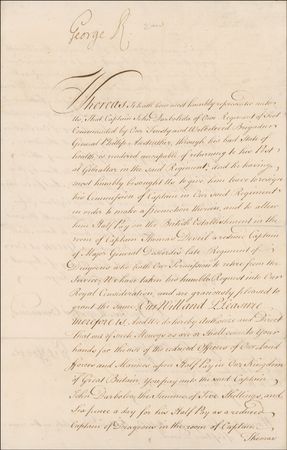 George R.
Whereas It hath been most humbly represented unto
Us, That Captain John Darbaleda of Our Regiment of Foot
Commanded by Our Trusty and Welbeloved Brigadier
General Phillip Anstruther, through his bad State of
health, is rendered uncapable of returning to his Post
at Gibraltar in the said Regiment; and he having
most humbly besought Us to give him leave to resign
his Commission of Captain in Our said Regiment
in order to make a promotion therein, and to allow
him Half Pay on the British Establishment in the
room of Captain Thomas Devid a reduced Captain
of Major General late Regiment of
Dragoons who hath Our Permission to retire from the
Service; We have taken his humble Request into Our
Royal Consideration, and are graciously pleased to
grant the same; Our Will and Pleasure
therefore is, And We do hereby Authorize and Direct
that out of such Moneys as are or shall come to Your
hands for the use of the reduced Officers of Our Land
Forces and Marines upon Half Pay in Our Kingdom
of Great Britain, You pay unto the said Captain
John Darbaleda, the Summe of Five Shillings, and
Six pence a day for his Half Pay as a reduced
Captain of Dragoons in the room of Captain
Thomas